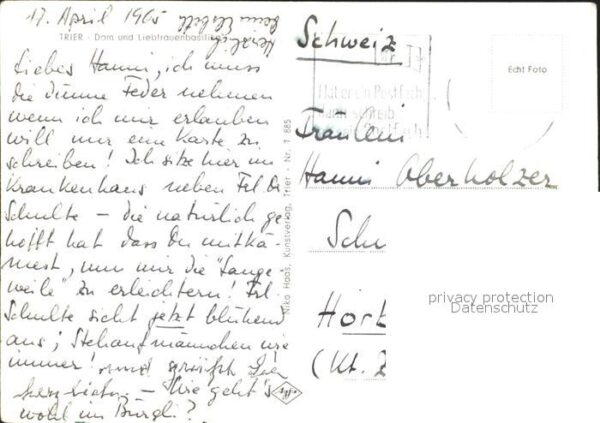 17. April 1965
Herzlich
TRIER · Dom und Liebfrauenbasilika
Liebes Hanni, ich muss
die dünne Feder nehmen
wenn ich mir erlauben
will nur eine Karte zu
schreiben! Ich sitze hier im
Krankenhaus neben Frl. Di
Schulte – die natürlich ge
hofft hat dass Du mitkä-
mest, um mir die "Lange-
weile" zu erleichtern! Frl.
Schulte sieht jetzt blühend
aus; Stehaufmännchen wie
immer! und grüsst Dich
herzlich. – Wie geht's
wohl im Bürgli?
Niko Haas, Kunstverlag, Trier - Nr. T 885
Agfa
Schweiz
Hat er ein Postfach
dann schreib
Postfach!
Echt Foto
Fräulein
Hanni Oberholzer
Schu
Hort
(Kt. Z
privacy protection
Datenschutz